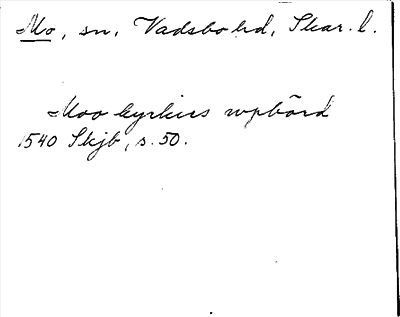 Mo, sn, Vadsbo hd, Skar. l.
Moo kyrkies wpbörd
1540 Skjb, s. 50.